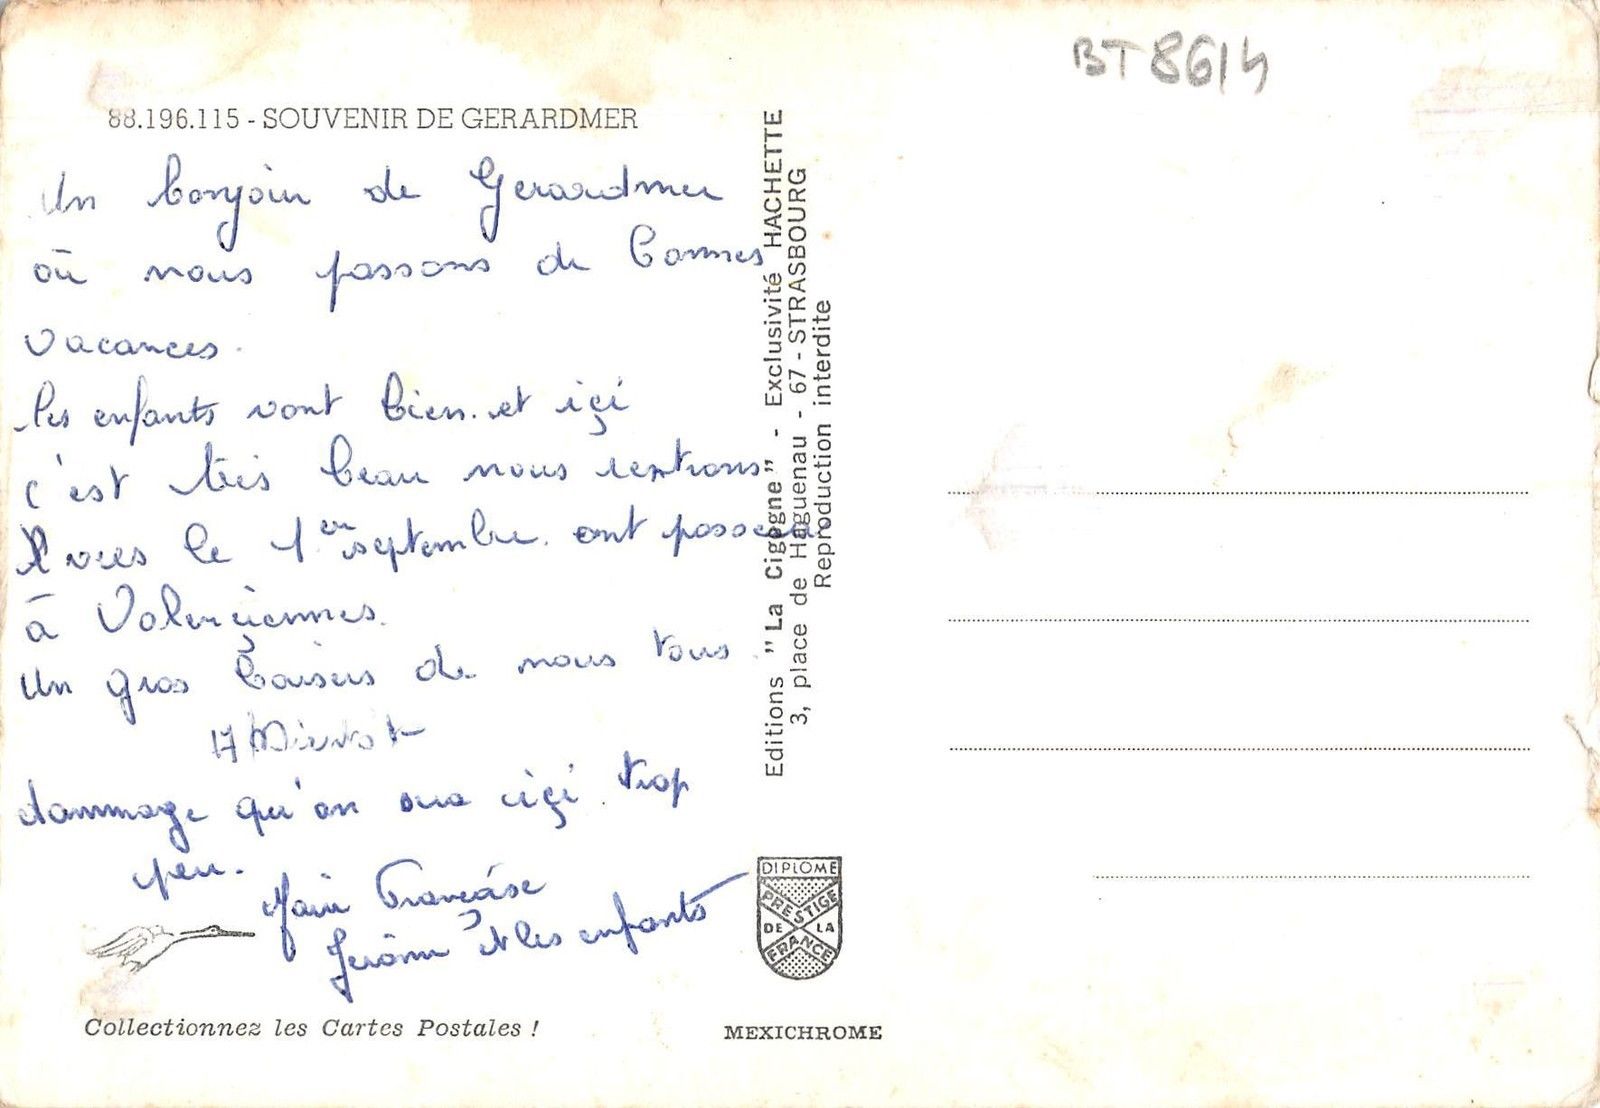 BT 8614
88.196.115 - SOUVENIR DE GERARDMER
Un bonjour de Gerardmer
où nous passons de bonnes
vacances.
les enfants vont bien. et içi
c'est très beau nous rentrons
vers le 1er septembre. ont passera
à Valençiennes.
Un gros baisers de nous tous.
dommage qu'on sera içi trop
peu.
Françoise
Jerôme et les enfants
Collectionnez les Cartes Postales !
Editions "La Cigogne" - Exclusivité HACHETTE
3, place de Haguenau - 67 - STRASBOURG
Reproduction interdite
DIPLOME
PRESTIGE
DE LA
FRANCE
MEXICHROME